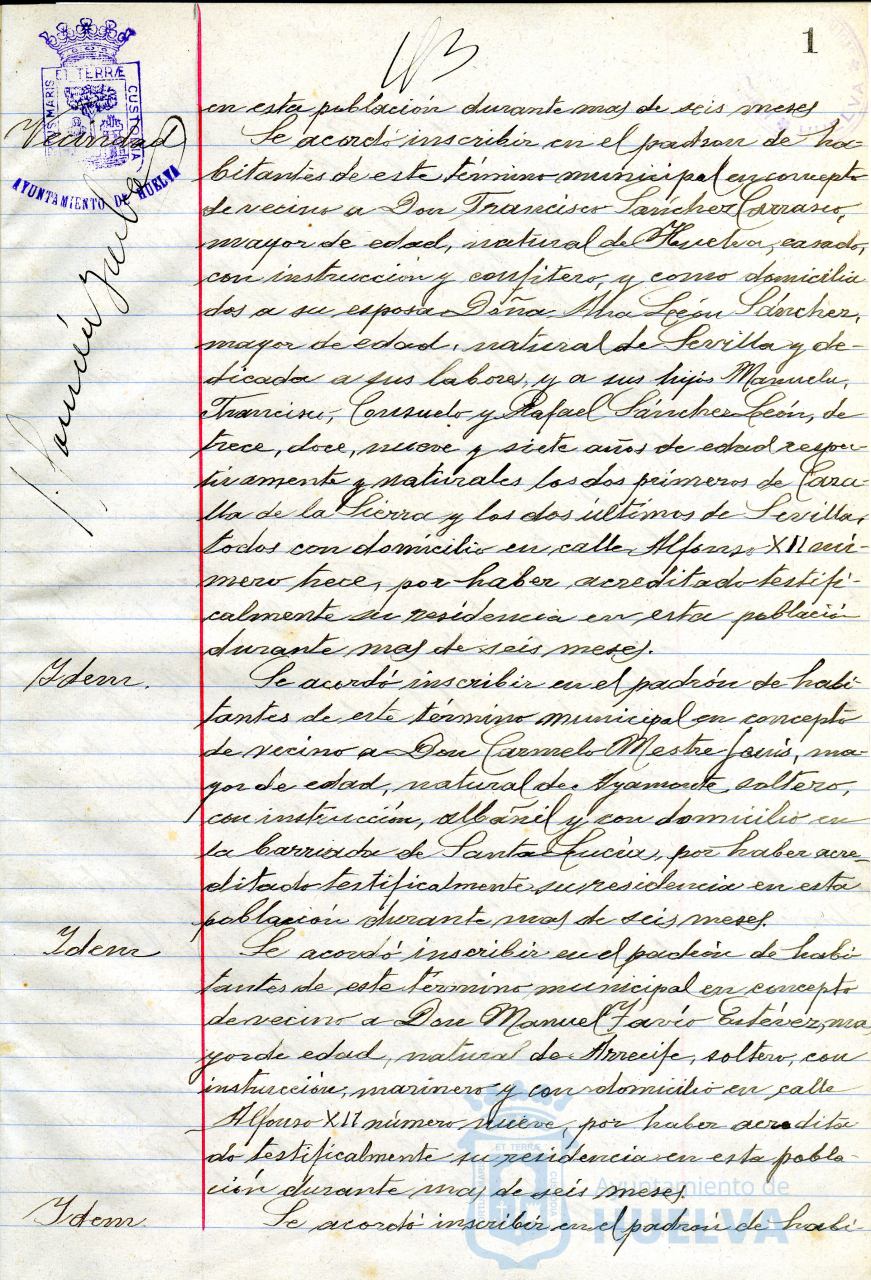 1
ET TERRÆ
PORTUS MARIS
CUSTODIA
AYUNTAMIENTO DE HUELVA
Vecindad
en esta población durante mas de seis meses
Se acordó inscribir en el padron de ha-
bitantes de este término municipal en concepto
de vecino a Don Francisco Sánchez Carrasco,
mayor de edad, natural de Huelva, casado,
con instrucción y confitero, y como domicilia
dos a su esposa Doña Ana León Sánchez,
mayor de edad, natural de Sevilla y de-
dicada a sus labores, y a sus hijos Manuela,
Francisco, Consuelo y Rafael Sánchez León, de
trece, doce, nueve y siete años de edad respec-
tivamente y naturales los dos primeros de Caza-
lla de la Sierra y los dos últimos de Sevilla,
todos con domicilio en calle Alfonso XII nú-
mero trece, por haber acreditado testifi-
calmente su residencia en esta población
durante mas de seis meses.
Idem.
Se acordó inscribir en el padrón de habi
tantes de este término municipal en concepto
de vecino a Don Carmelo Mestre, ma-
yor de edad, natural de Ayamonte, soltero,
con instrucción, albañil y con domicilio en
la barriada de Santa Lucía, por haber acre-
ditado testificalmente su residencia en esta
población durante mas de seis meses.
Idem
Se acordó inscribir en el padrón de habi
tantes de este término municipal en concepto
de vecino a Don Manuel Favío Estévez, ma
yor de edad, natural de Arrecife, soltero, con
instrucción, marinero y con domicilio en calle
Alfonso XII número nueve, por haber acredita
do testificalmente su residencia en esta pobla-
ción durante mas de seis meses.
Idem
Se acordó inscribir en el padrón de habi
Ayuntamiento de
HUELVA